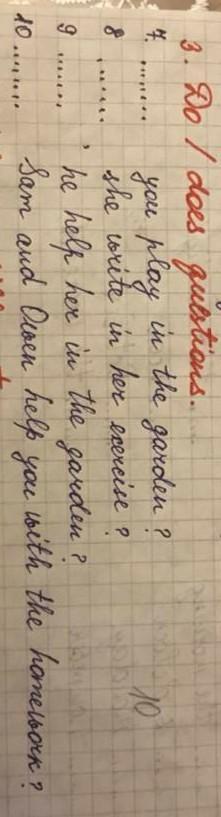 3. Do / does questions.
7. ........ you play in the garden?
8 ........ she write in her exercise?
9 ........, he help her in the garden?
10 ........ Sam and Owen help you with the homework?
10